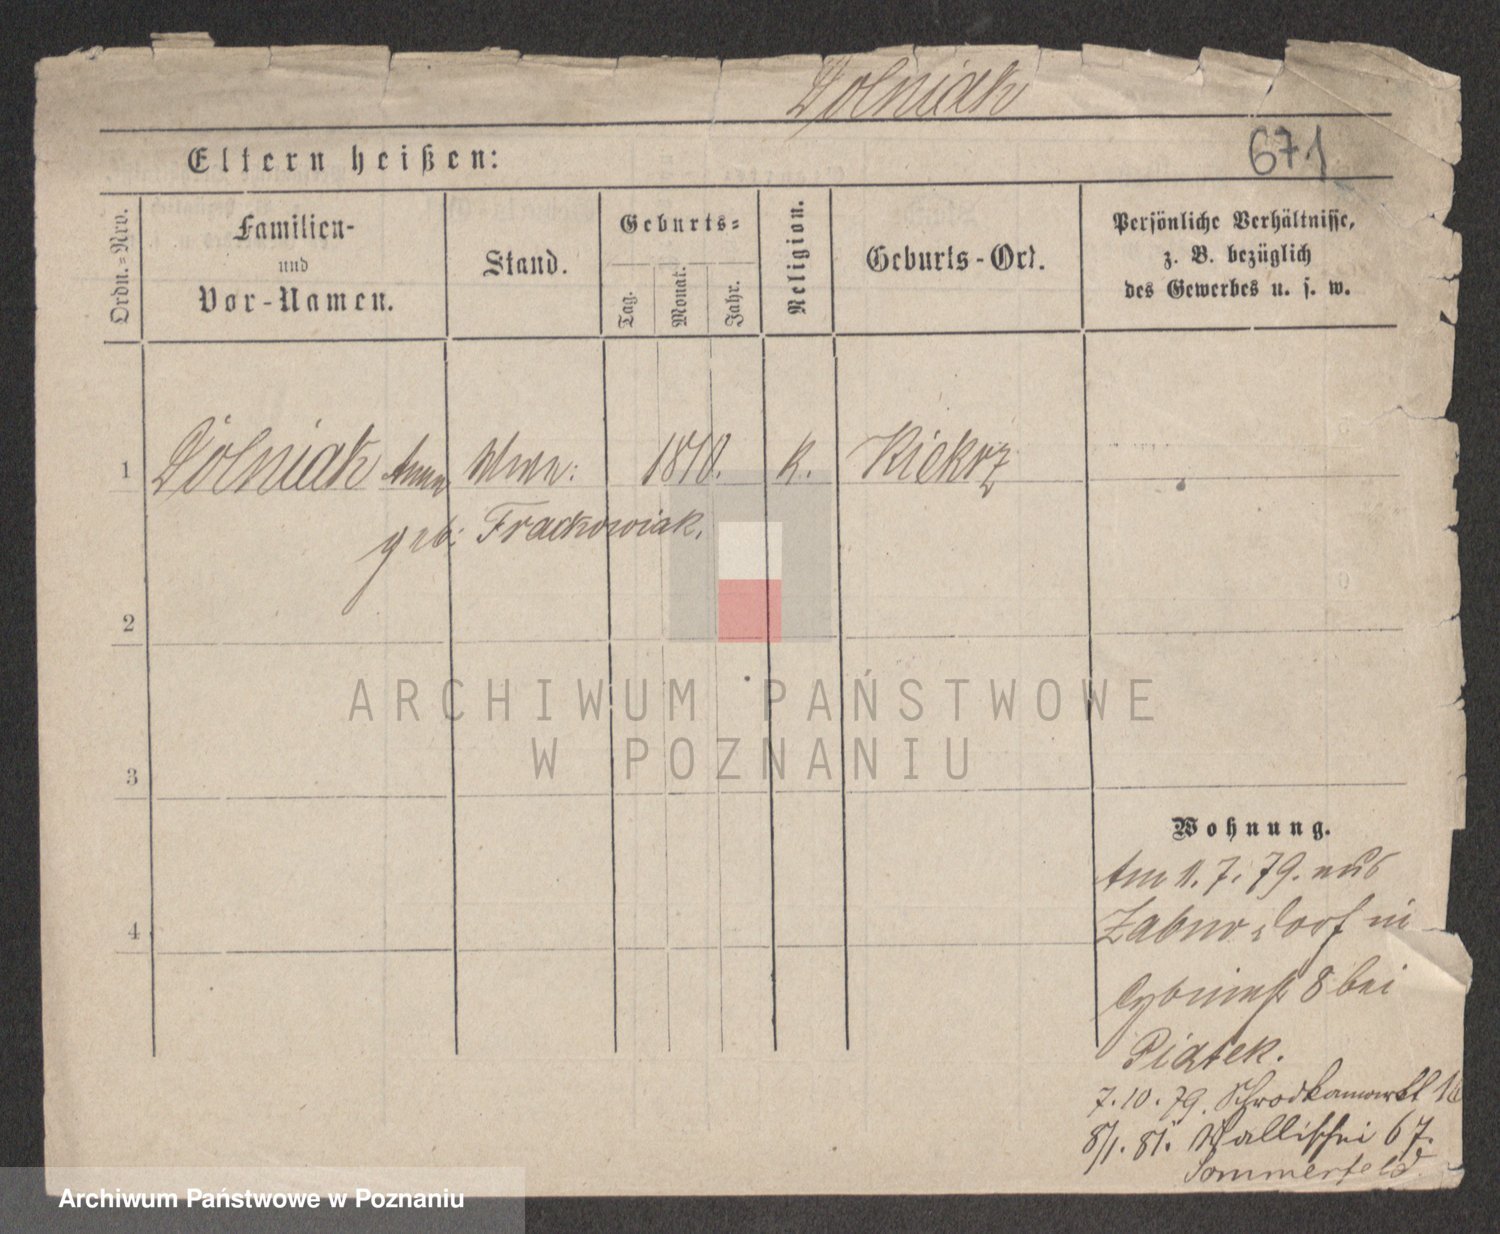 Dolniak
671
Eltern heißen:
Ordn.=Nrv.
Familien-
und
Vor-Namen.
Stand.
Geburts=
Tag.
Monat.
Jahr.
Religion.
Geburts-Ort.
Persönliche Verhältnisse,
z. B. bezüglich
des Gewerbes u. s. w.
1 Dolniak Anna Wwe: 1810. k. Kiekrz
geb: Frackowiak.
2
3
4
Wohnung.
Am 1. 7. 79. aus
dorf in
8 bei
Piątek.
7. 10. 79. Schrodkamarkt
8/1. 81. Wallischei 67.
Sommerfeld.
ARCHIWUM PAŃSTWOWE
W POZNANIU
Archiwum Państwowe w Poznaniu